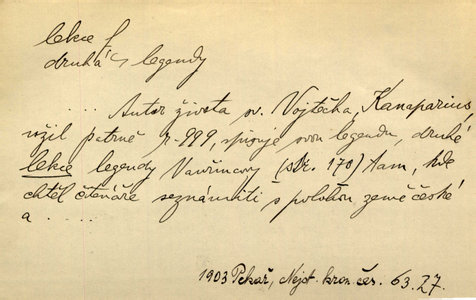 lekce f
druhá legendy
.... Autor života sv. Vojtěcha, Kanaparius,
užil patrně r. 999, spisuje svou legendu, druhé
lekce legendy Vavřincovy (str. 170) tam, kde
chtěl čtenáře seznámiti s polohou země české
a .....
1903 Pekař, Nejst. kron. čes. 63.27.